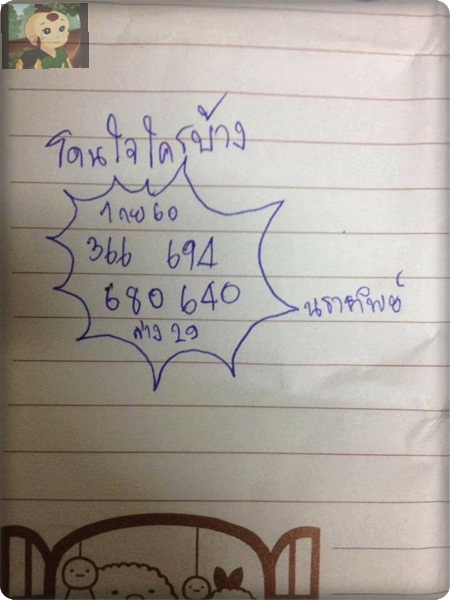 โดนใจใครบ้าง
1 กย 60
366 694
680 640
ล่าง 29
นราทิพย์